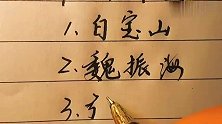 1.白宝山
2.魏振海
3.